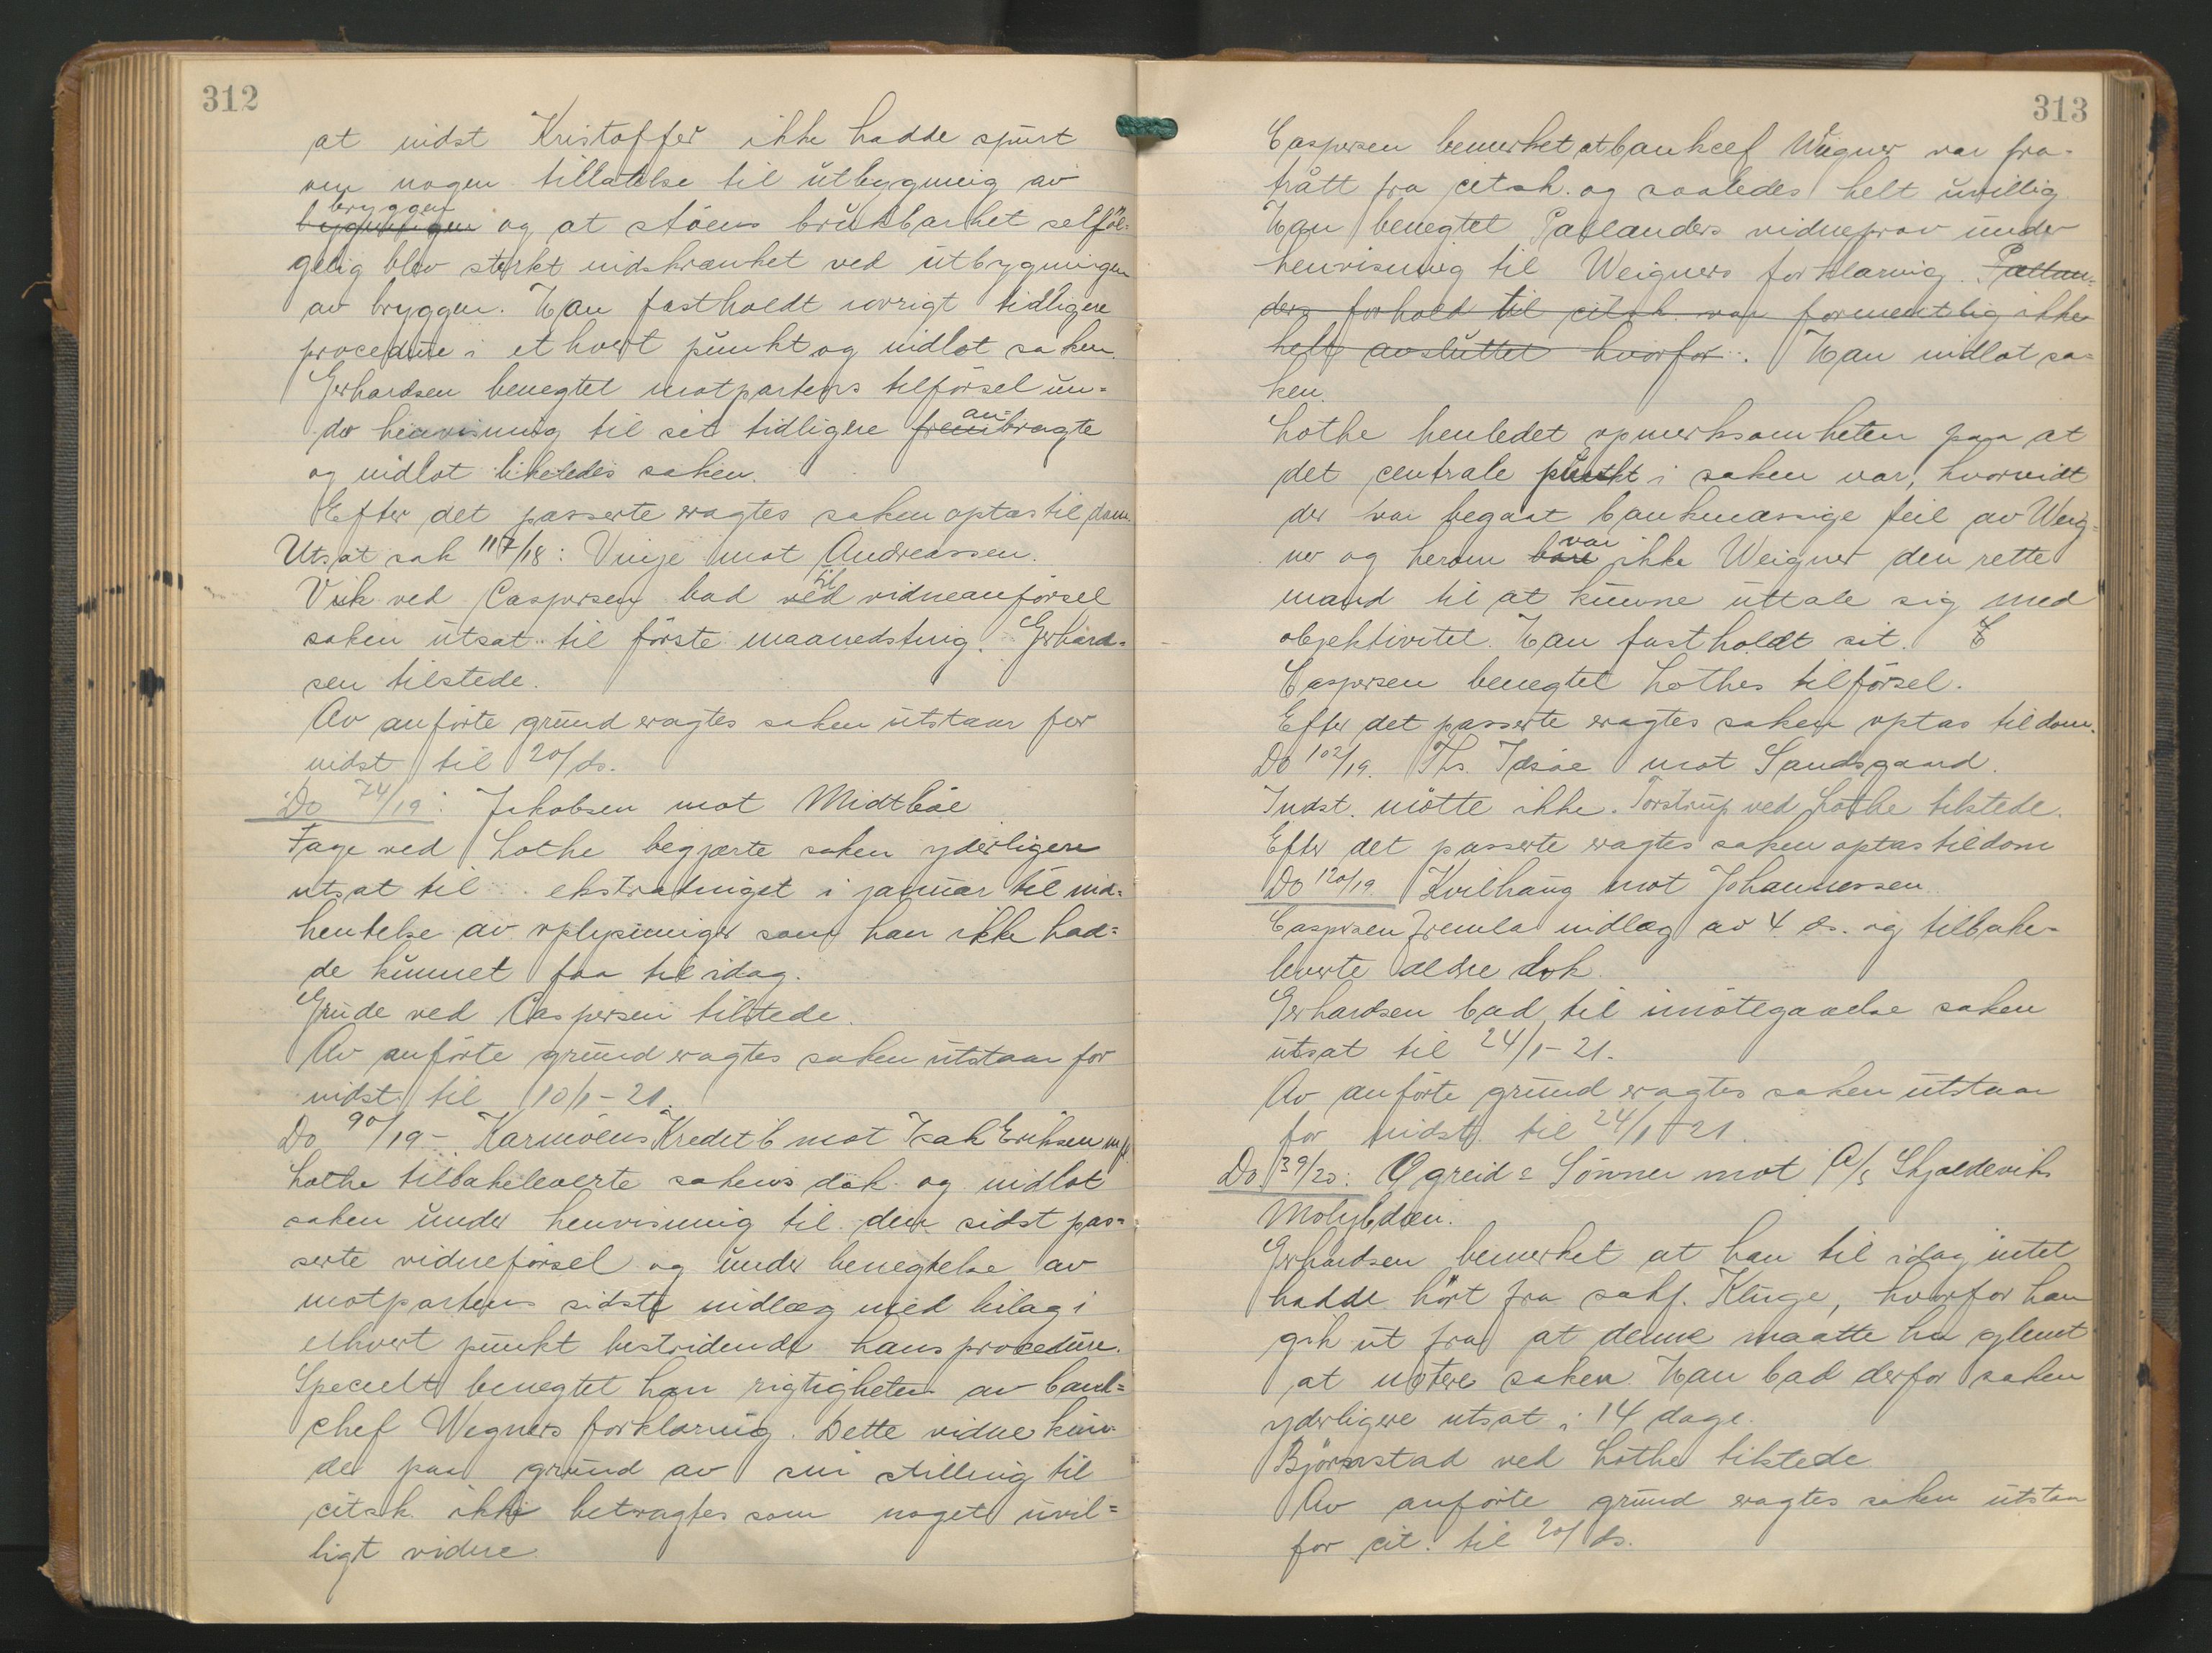 312
at indst Kristoffer ikke hadde spurt
om nogen tillatelse til utbygning av
bryggen
bygningen og at støens brukbarhet selføl-
gelig blev sterkt indskrænket ved utbygningen
av bryggen. Han fastholdt iøvrigt tidligere
procedure i ethvert punkt og indlot saken.
Gerhardsen benegtet motpartens tilførsel un=
der henvisning til sit tidligere frem an-bragte
og indlot likeledes saken.
Efter det passerte eragtes saken optas til dom.
Utsat sak 117/18: Vinje mot Andreassen.
Vik ved Caspersen bad ved til vidneanførsel
saken utsat til første maanedsting. Gerhard=
sen tilstede.
Av anførte grund eragtes saken utstaar for
indst til 20/ds.
Do 74/19: Jakobsen mot Midtbøe
Fage ved Lothe begjærte saken yderligere
utsat til ekstratinget i januar til ind=
hentelse av oplysninger som han ikke had=
de kunnet faa til idag.
Grude ved Caspersen tilstede.
Av anførte grund eragtes saken utstaar for
indst. til 10/1-21.
Do 90/19 - Karmøens Kreditb mot Isak Eriksen m/fl
Lothe tilbakeleverte sakens dok. og indlot
saken under henvisning til den sidst pas=
serte vidneførsel og under benegtelse av
motpartens sidste indlæg med bilag i
ethvert punkt bestridende hans procedure.
Specielt benegtet han rigtigheten av bank=
chef Wegners forklaring. Dette vidne kun-
de paa grund av sin stilling til
citsk. ikke betragtes som noget uvil=
ligt vidne.
313
Caspersen bemerket at bankcef Weigner var fra-
trått fra citsk. og saaledes helt uvillig
Han benegtet Pallanders vidneprov under
henvisning til Weigners forklaring. Pallan=
ders forhold til citsk. var formentlig ikke
helt avsluttet hvorfor. Han indlot sa=
ken.
Lothe henledet opmerksomheten paa at
det centrale punkt i saken var, hvorvidt
der var begaat bankmæssige feil av Weig=
ner og herom bare var ikke Weigner den rette
mand til at kunne uttale sig med
objektivitet. Han fastholdt sit. C
Caspersen benegtet Lothes tilførsel.
Efter det passerte eragtes saken optas til dom.
Do 102/19. Ths. Idsøe mot Sandsgaard.
Indst. møtte ikke. Torstrup ved Lothe tilstede.
Efter det passerte eragtes saken optas til dom
Do 120/19 Kvilhaug mot Johannessen.
Caspersen fremla indlæg av 4 ds. og tilbake-
leverte ældre dok.
Gerhardsen bad til imøtegaaelse saken
utsat til 24/1-21.
Av anførte grund eragtes saken utstaar
for indst. til 24/1-21.
Do 39/20: Ogreid & Sønner mot A/S Skjoldevik
Molybdæn.
Gerhardsen bemerket at han til idag intet
hadde hørt fra sakf. Kluge, hvorfor han
gik ut fra at denne maatte ha glemt
at notere saken. Han bad derfor saken
yderligere utsat i 14 dage.
Bjørnstad ved Lothe tilstede
Av anførte grund eragtes saken utstaa
for cit. til 20/ds.